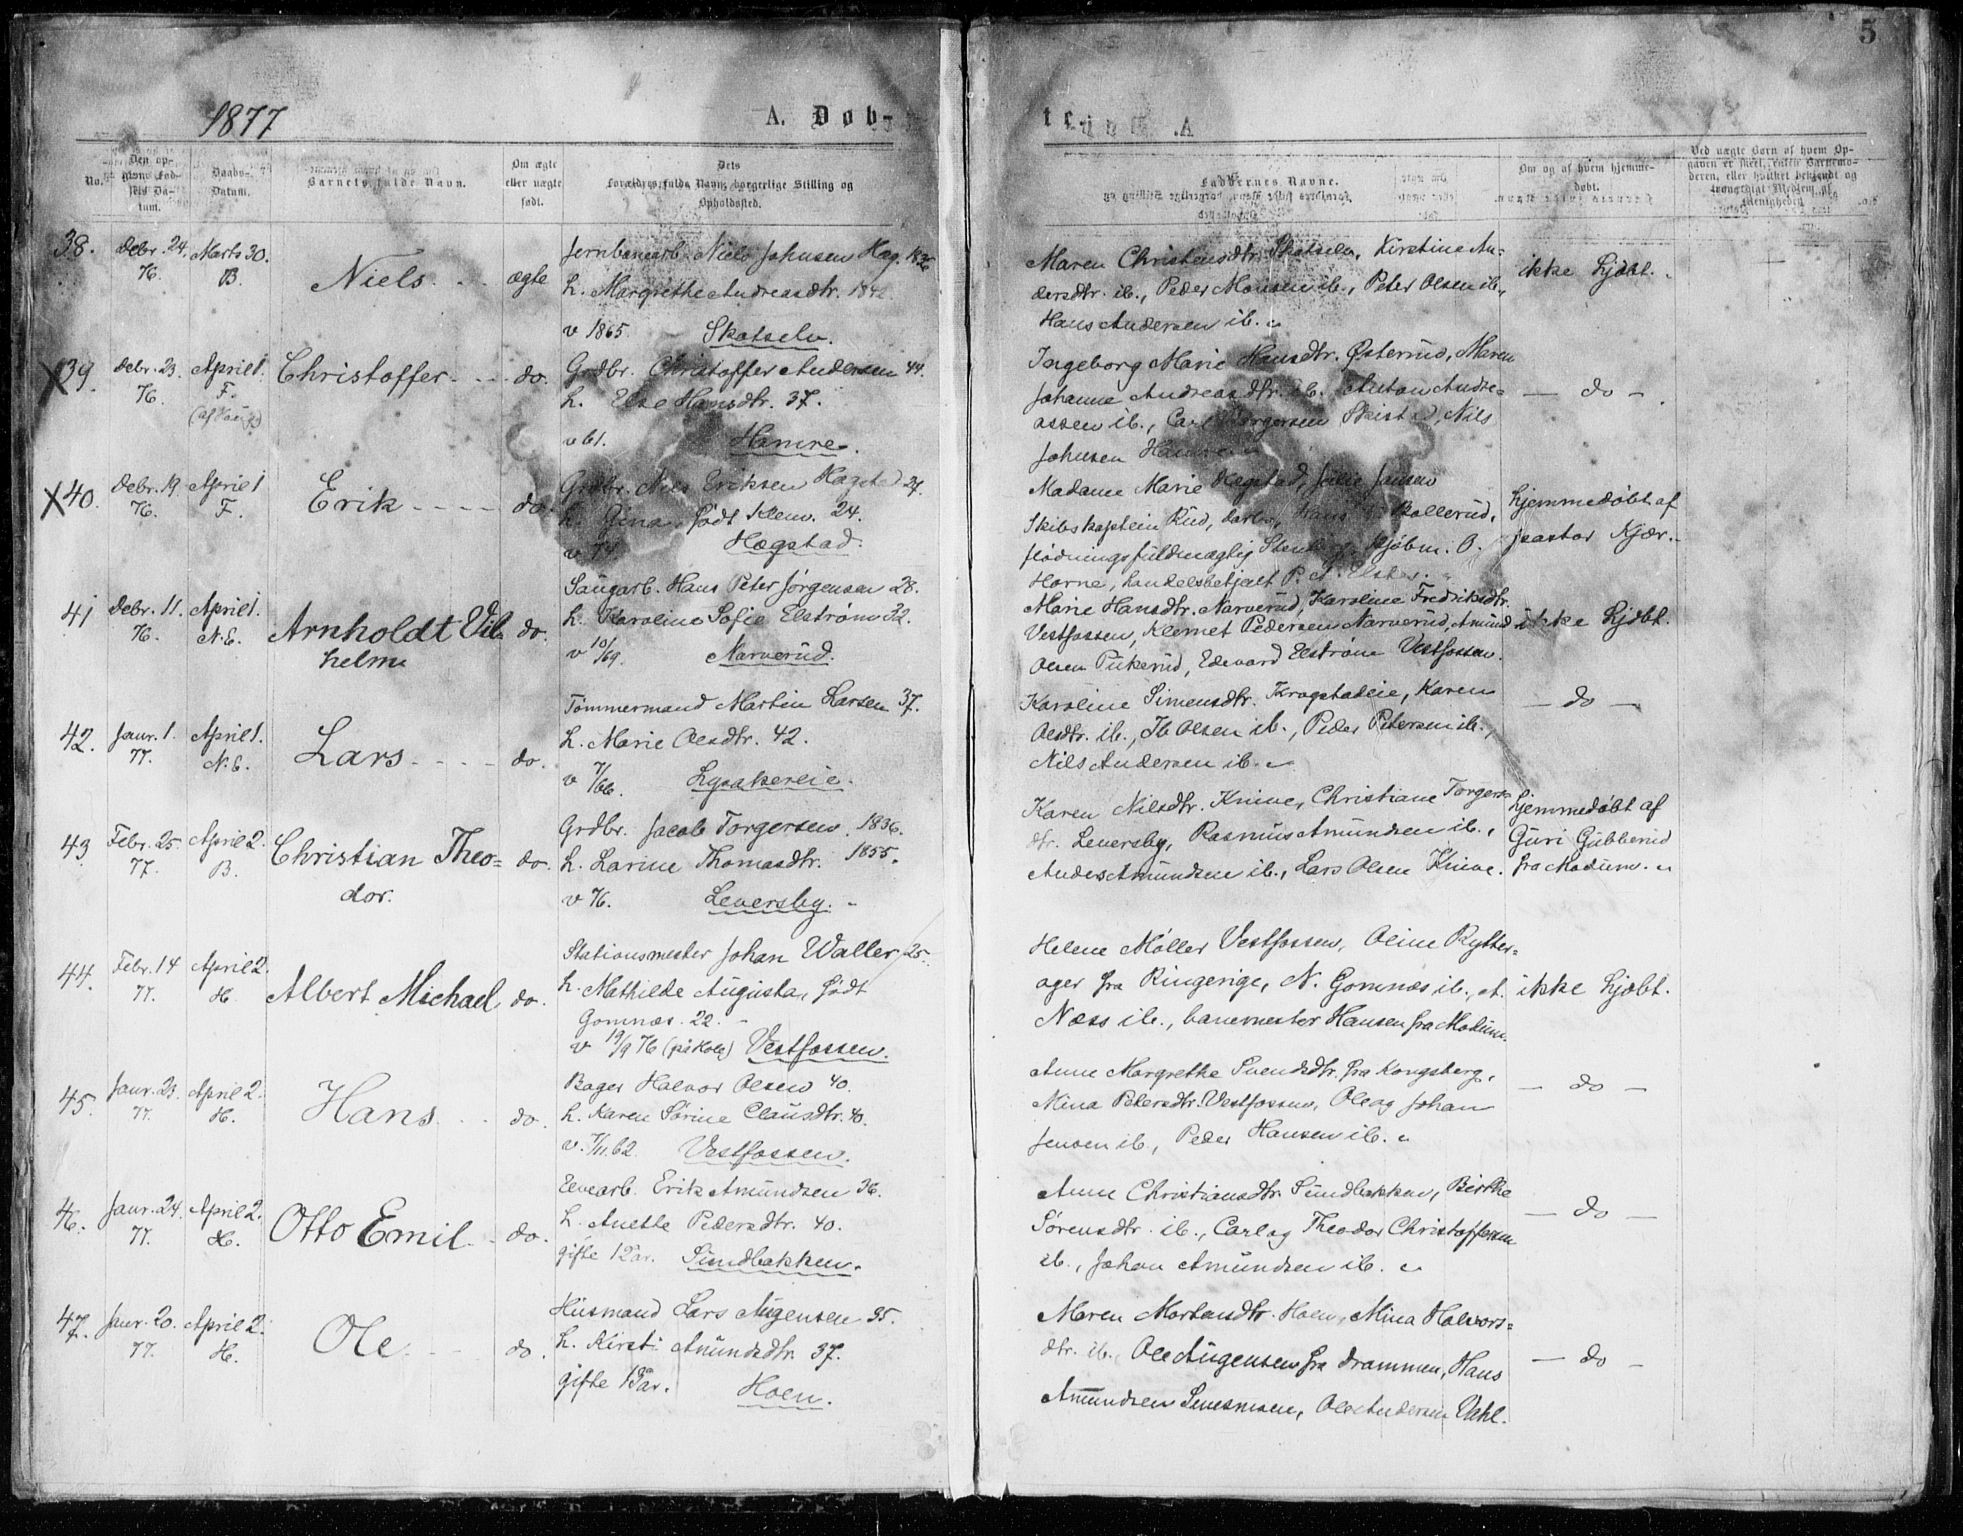 5
1877
A. Døb-
te.
No.
Den op-
givne Fød-
sels Da-
tum.
Daabs-
Datum.
Barnets fulde Navn.
Om ægte
eller uægte
født.
Dets
Forældres fulde Navn, borgerlige Stilling og
Opholdssted.
Faddernes Navne.
Om og af hvem hjemme-
døbt.
Ved uægte Børn af hvem Op-
gaven er skeet, enten Barnemo-
deren, eller hvilket bekjendt og
troværdigt Medlem af
Menigheden
38.
Debr. 24.
76.
Marts 30.
B.
Niels
ægte
Jernbanearb. Niels Johnsen Hæg. 1836
h. Margrethe Andreasdtr. 1842
v 1865 Skotselv.
Maren Christensdtr. Skotselv, Kirstine An-
dersdtr. ib., Peder Monsen ib., Peter Olsen ib.,
Hans Andersen ib.
ikke hjdbt.
39.
Debr. 23.
76.
April 1.
F.
Christoffer
do.
Grdbr. Christoffer Andersen 44.
h. Else Hansdtr. 37.
v 61. Hamre.
Ingeborg Marie Hansdtr. Østerud, Maren
Johanne Andreasdtr. ib. Anton Andre=
assen ib., Carl Torgersen Nils
Johnsen Hamre
— do —
40.
Debr. 19.
76.
April 1
F.
Erik
do.
Grdbr. Nils Eriksen Hægstad 27.
h. Gina, født Klem. 24.
v 74 Hægstad.
Madame Marie Hægstad, Julie Jansen
Skibskaptein Rud, Hans Bollerud,
fuldmægtig Kjøbm. O.
Horne, handelsbetjent P.
hjemmedøbt af
pastor Kjær.
41
Debr. 11.
76.
April 1.
N.E.
Arnholdt Vil-
helm
do.
Saugarb. Hans Peter Jørgensen 28.
h. Karoline Sofie Elstrøm 32.
v 10/69. Narverud.
Marie Hansdtr. Narverud, Karoline Fredriksdtr.
Vestfossen, Klemet Pedersen Narverud, Amund
Olsen Pukerud, Edevard Elstrøm Vestfossen.
ikke hjdbt.
42.
Janr. 1.
77.
April 1.
N.E.
Lars
do.
Tømmermand Martin Larsen 37.
h. Marie Olsdtr. 42.
v 7/66. Lysakereie.
Karoline Simensdtr. Krogstadeie, Karen
Olsdtr. ib., Ib Olsen ib., Peder Petersen ib.,
Nils Andersen ib.
— do —
43
Febr. 25.
77.
April 2.
B.
Christian Theo=
dor.
do.
Grdbr. Jacob Torgersen. 1836.
h. Larine Thomasdtr. 1855.
v 76. Leversby.
Karen Nilsdtr. Knive, Christiane Torgers
dtr. Leversby, Rasmus Amundsen ib.,
Anders Amundsen ib., Lars Olsen Knive.
hjemmedøbt af
Guri Gubberud
fra Modum.
44.
Febr. 14
77.
April 2.
H.
Albert Michael
do.
Stationsmester Johan Waller 25.
h. Mathilde Augusta, født
Gomnæs. 22.
v 19/9 76 (på Hole) Vestfossen.
Helene Møller Vestfossen, Oline Rytter=
ager fra Ringerige, N. Gomnæs ib., A.
Næss ib., banemester Hansen fra Modum.
ikke hjdbt.
45.
Janr. 23.
77.
April 2.
H.
Hans
do.
Bager Halvor Olsen 40.
h. Karen Sørine Clausdtr. 40.
v. 7/11 62. Vestfossen.
Anne Margrethe Svendsdtr. fra Kongsberg,
Mina Petersdtr. Vestfossen, Ole og Johan
Jensen ib., Peder Hansen ib.
— do —
46.
Janr. 24.
77.
April 2.
H.
Otto Emil
do.
Elvearb. Erik Amundsen 36.
h. Anette Pedersdtr. 40.
gifte 12 ar. Sundbakken.
Anne Christiansdtr. Sundbakken, Birthe
Sørensdtr. ib., Carl og Theodor Christoffersen
ib., Johan Amundsen ib.
— do —
47.
Janr. 20.
77.
April 2.
H.
Ole
do.
Husmand Lars Augensen 35.
h. Kirsti Amundsdtr. 37.
gifte 13 ar. Hoen.
Maren Mortensdtr. Hoen, Mina Halvors=
dtr. ib., Ole Augensen fra Drammen, Hans
Amundsen Ole Andersen
— do —